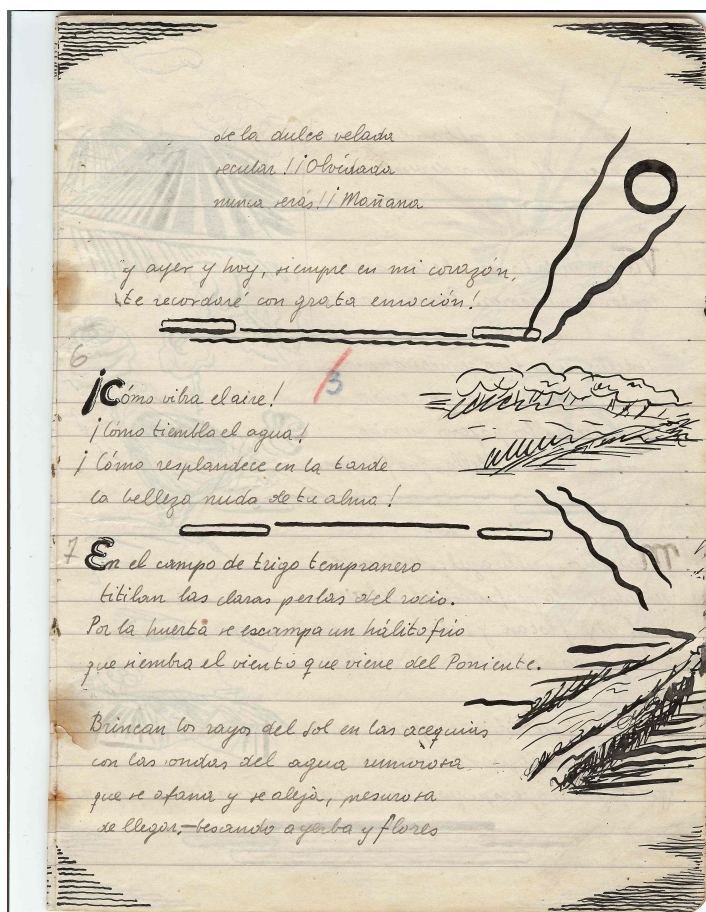 de la dulce velada
secular!! ¡Olvidada
nunca serás!! ¡Mañana
y ayer y hoy, siempre en mi corazón,
te recordaré con grata emoción!
6
3
¡Cómo vibra el aire!
¡Cómo tiembla el agua!
¡Cómo resplandece en la tarde
la belleza nuda de tu alma!
7
En el campo de trigo tempranero
titilan las claras perlas del rocío.
Por la huerta se escampa un hálito frío
que siembra el viento que viene del Poniente.
Brincan los rayos del sol en las acequias
con las ondas del agua rumorosa
que se afana y se aleja, presurosa
de llegar, besando a yerba y flores